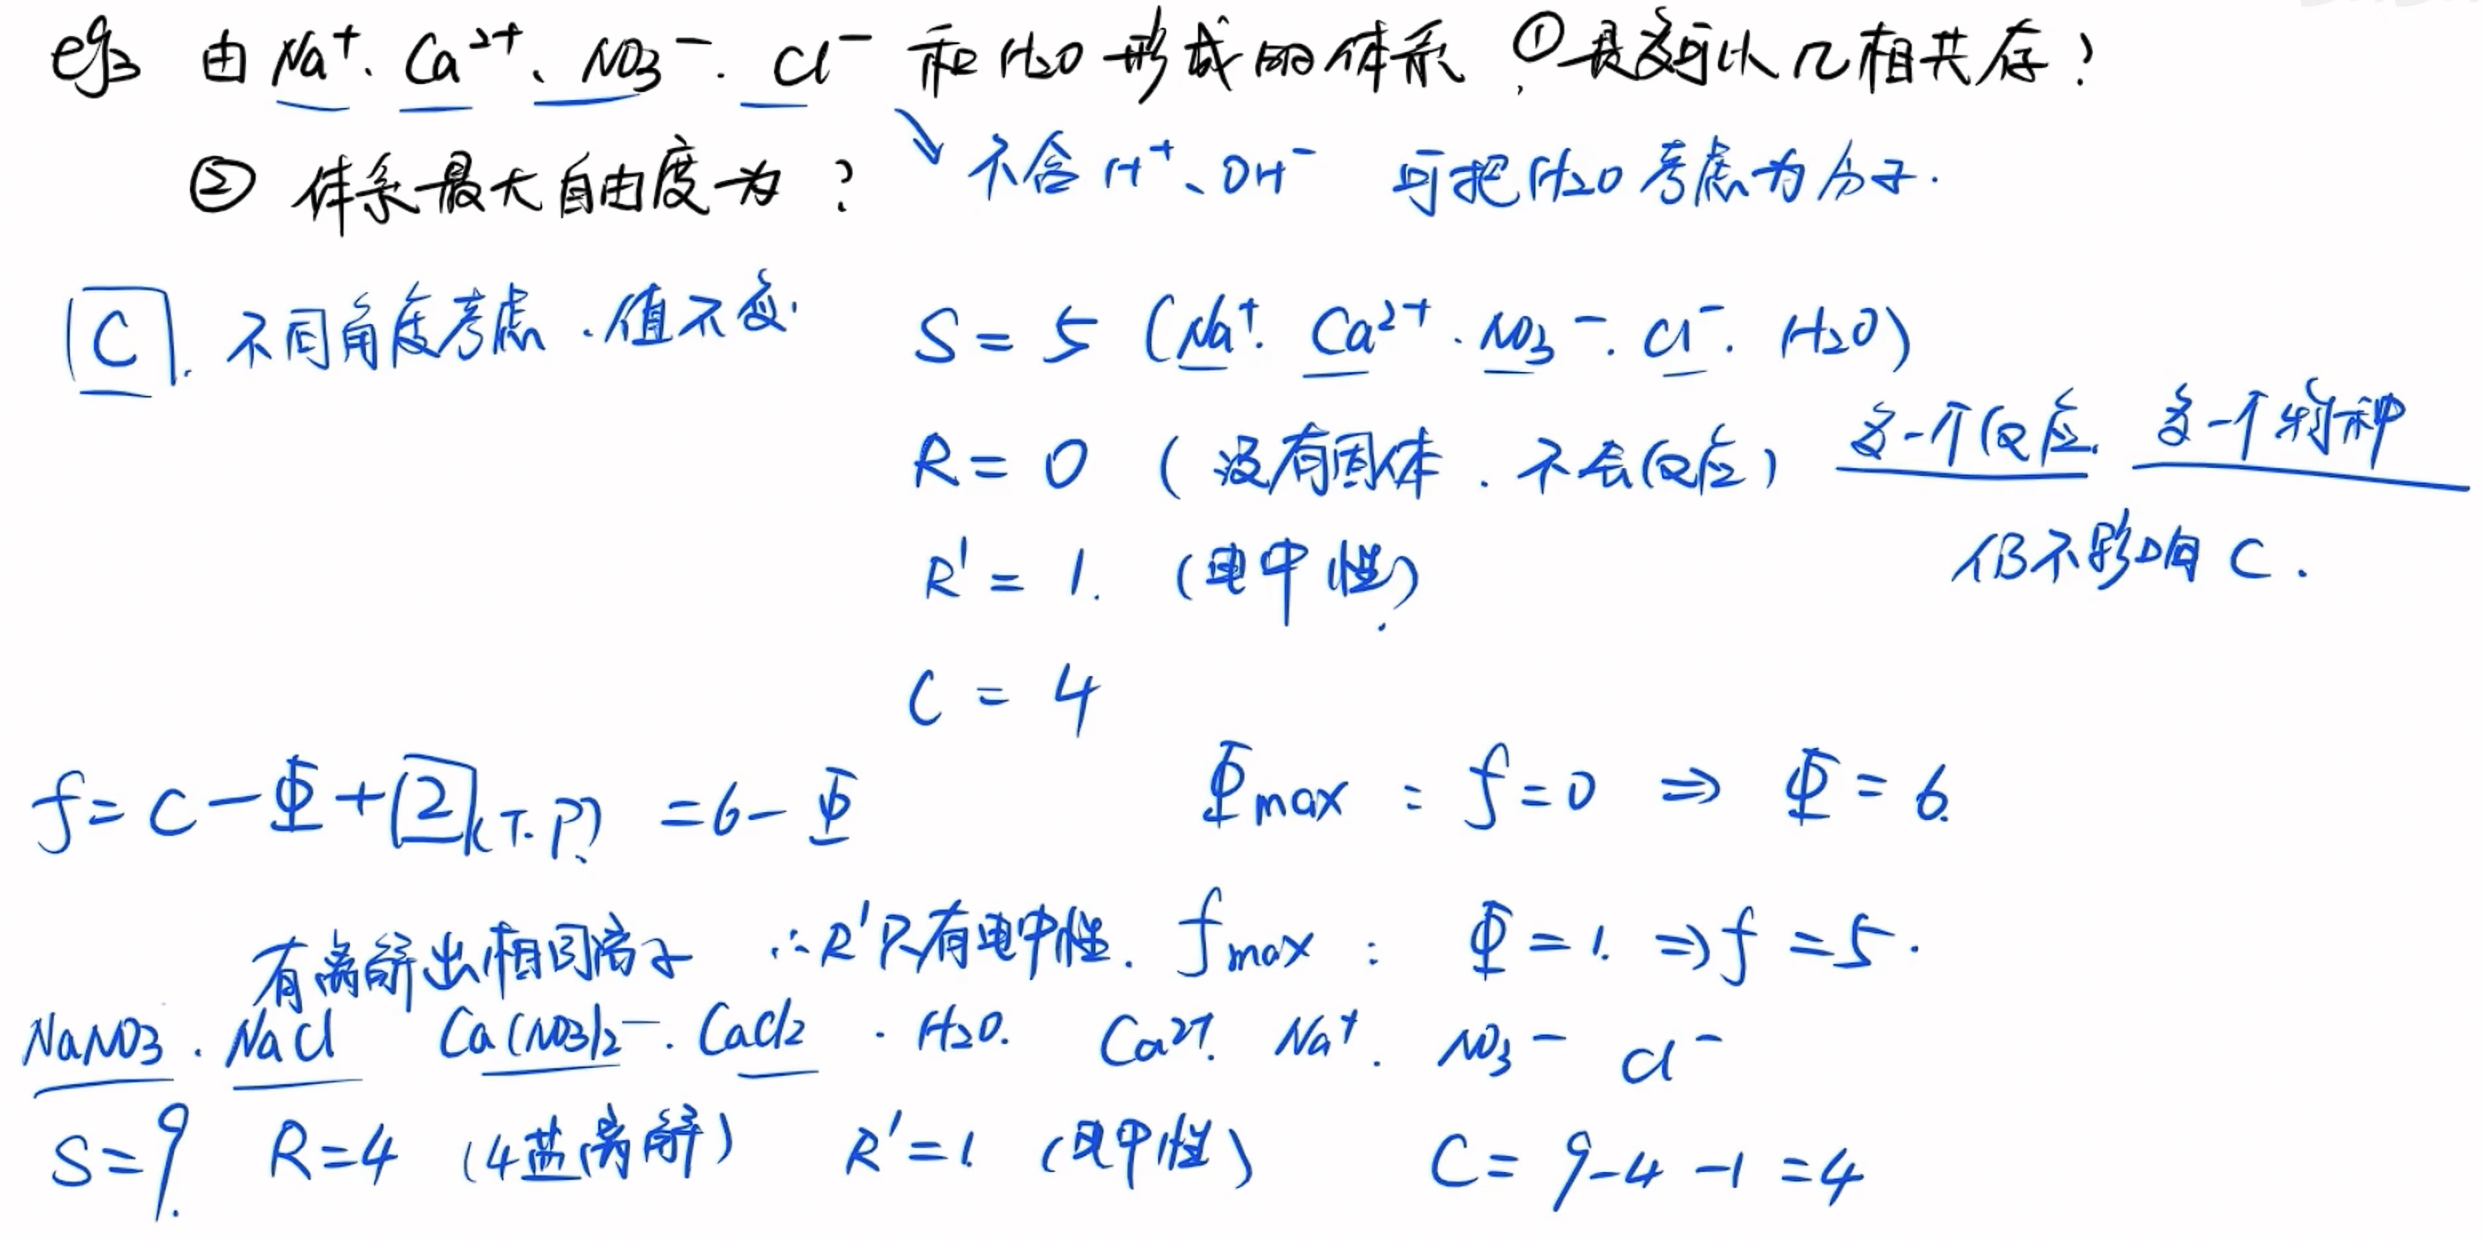 eg3 由 Na⁺、Ca²⁺、NO₃⁻、Cl⁻ 和 H₂O 形成的体系, ① 最多可以几相共存?
② 体系最大自由度为? ↘ 不含 H⁺、OH⁻ 可把 H₂O 考虑为分子.
C. 不同角度考虑.值不变. S = 5 (Na⁺. Ca²⁺. NO₃⁻. Cl⁻. H₂O)
R = 0 (没有固体.不会反应) 多一个反应. 多一个物种
R' = 1. (电中性) 仍不影响 C.
C = 4
f = C - Φ + 2 (T.P.) = 6 - Φ Φmax : f = 0 ⇒ Φ = 6.
有离解出相同离子 ∴R'只有电中性. fmax : Φ = 1. ⇒ f = 5.
NaNO₃. NaCl Ca(NO₃)₂⁻. CaCl₂ . H₂O. Ca²⁺. Na⁺. NO₃⁻ Cl⁻
S = 9. R = 4 (4盐离解) R' = 1 (电中性) C = 9 - 4 - 1 = 4